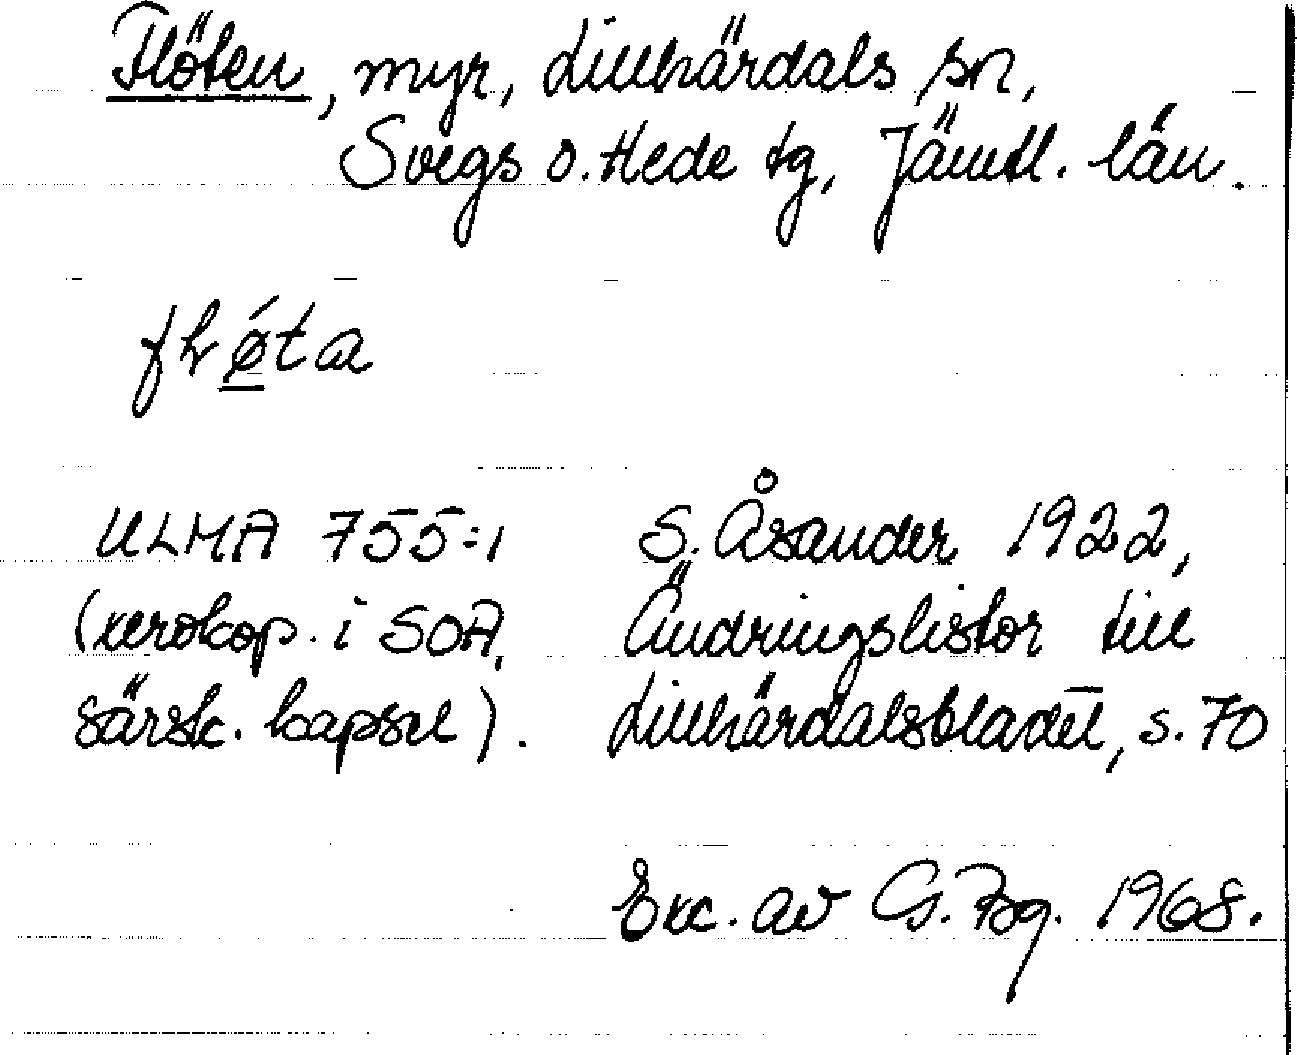 Flöten, myr, Lillhärdals sn,
Svegs o. Hede tg, Jämtl. län.
ULMA 755:1 S. Åsander 1922,
(xerokop. i SOA, Ändringslistor till
särsk. kapsel). Lillhärdalsbladet, s. 70
Exc. av G. Bg. 1968.